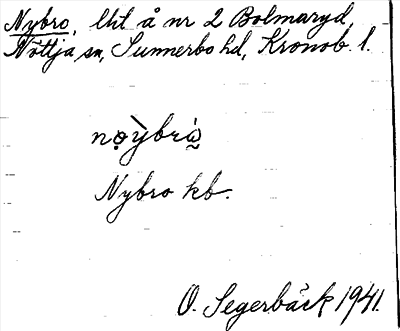 Nybro, lht å nr 2 Bolmaryd,
Nöttja sn, Sunnerbo hd, Kronob. l.
nọỳbrὼ̰
Nybro kb.
O. Segerbäck 1941.